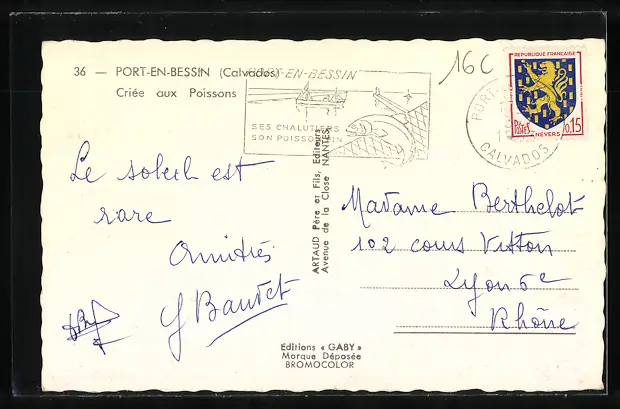 36 — PORT-EN-BESSIN (Calvados)
Criée aux Poissons
PORT-EN-BESSIN
SES CHALUTIERS
SON PUISSOT
16 C
PORT-
CALVADOS
REPUBLIQUE FRANÇAISE
Postes
0,15
NEVERS
Le soleil est
rare
Amitiés
102 cours Vitton
Madame Berthelot
Lyon 6e
Rhône
ARTAUD Père et Fils, Editeurs
Avenue de la Close NANTES
Editions « GABY »
Marque Déposée
BROMOCOLOR